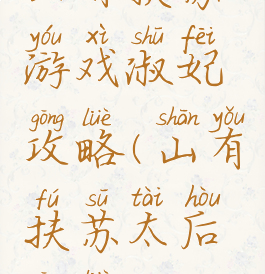 yóu xì shū fēi
游戏淑妃
gōng lüè shān yǒu
攻略(山有
fú sū tài hòu
扶苏太后